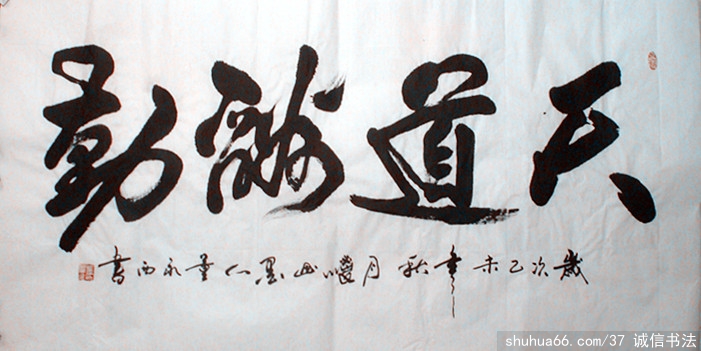 天道酬勤
歲次乙未年秋月山墨人永西書
shuhua66.com/37 诚信书法